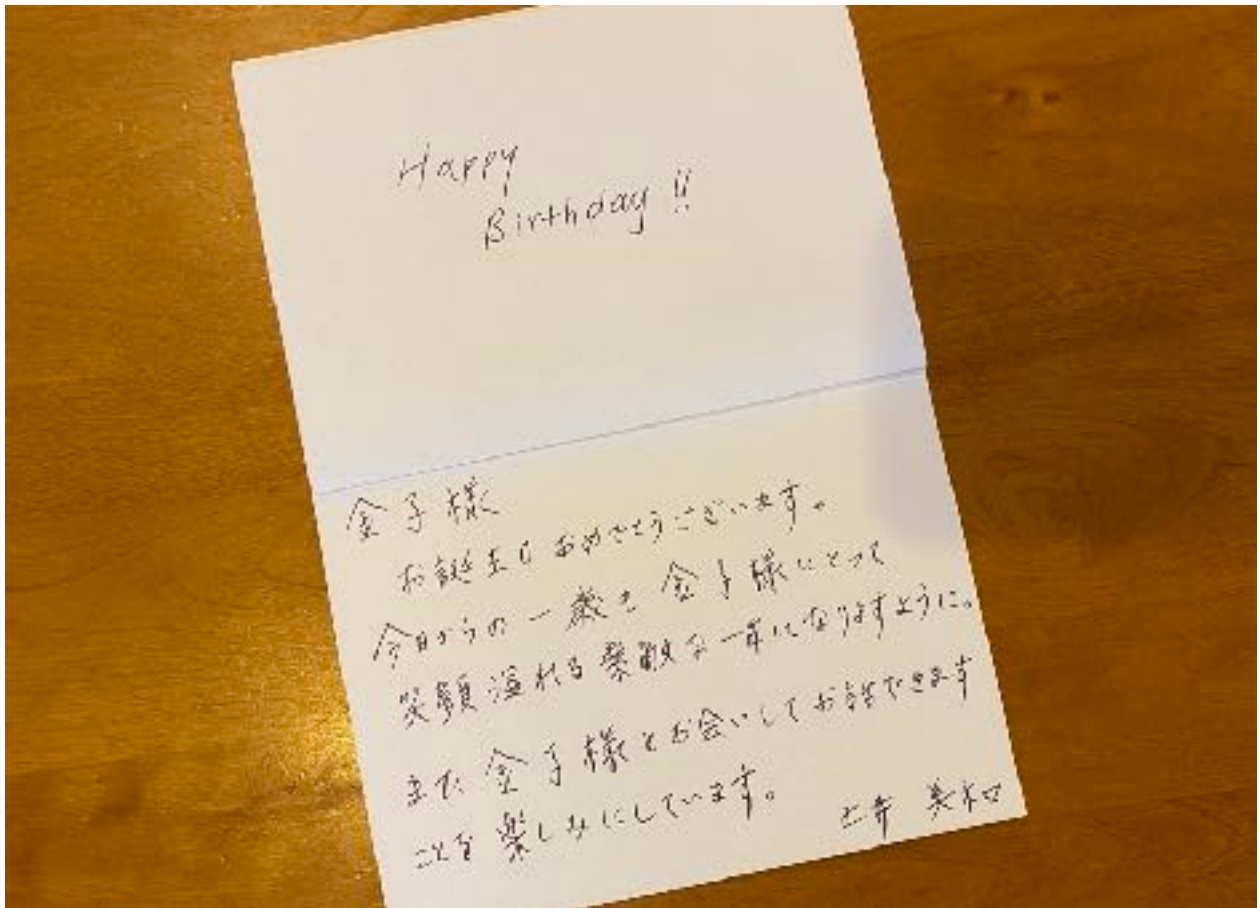 Happy
Birthday!!
金子様
お誕生日おめでとうございます。
今日からの一歳も金子様にとって
笑顔溢れる素敵な一年になりますように。
また金子様とお会いしてお話できます
ことを楽しみにしています。
土井 美和